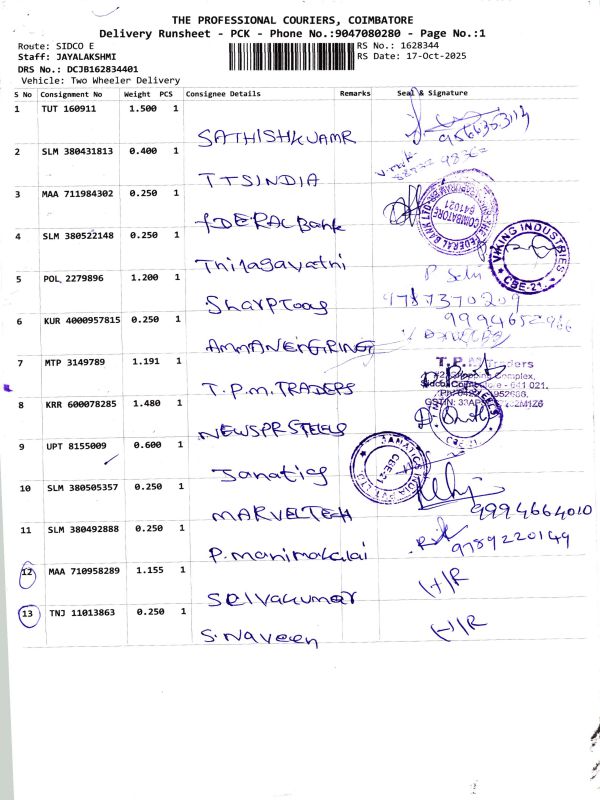 THE PROFESSIONAL COURIERS, COIMBATORE
Delivery Runsheet - PCK - Phone No.:9047080280 - Page No.:1
Route: SIDCO E
Staff: JAYALAKSHMI
DRS No.: DCJB162834401
Vehicle: Two Wheeler Delivery
RS No.: 1628344
RS Date: 17-Oct-2025
S No Consignment No Weight PCS Consignee Details Remarks Seal & Signature
1 TUT 160911 1.500 1
SATHISHKUAMR
2 SLM 380431813 0.400 1
TTSINDIA
3 MAA 711984302 0.250 1
fDERAL Bank
THE FEDERAL BANK LTD
COIMBATORE
641021
4 SLM 380522148 0.250 1
Thijagavathi
VIKING INDUSTRIES
CBE-21
5 POL 2279896 1.200 1
SharpTools
9787370209
6 KUR 4000957815 0.250 1
7 MTP 3149789 1.191 1
T.P.M. TRADERS
T.P.M Traders
8 KRR 600078285 1.480 1
NEWSPRSTEELS
CBE-21
9 UPT 8155009 0.600 1
Janatics
JANATICS INDIA PVT LTD
CBE-21
10 SLM 380505357 0.250 1
MARVELTECH
9994664010
11 SLM 380492888 0.250 1
P. manimakalai
9789220149
12 MAA 710958289 1.155 1
Selvakumar
H/R
13 TNJ 11013863 0.250 1
S. Naveen
H/R